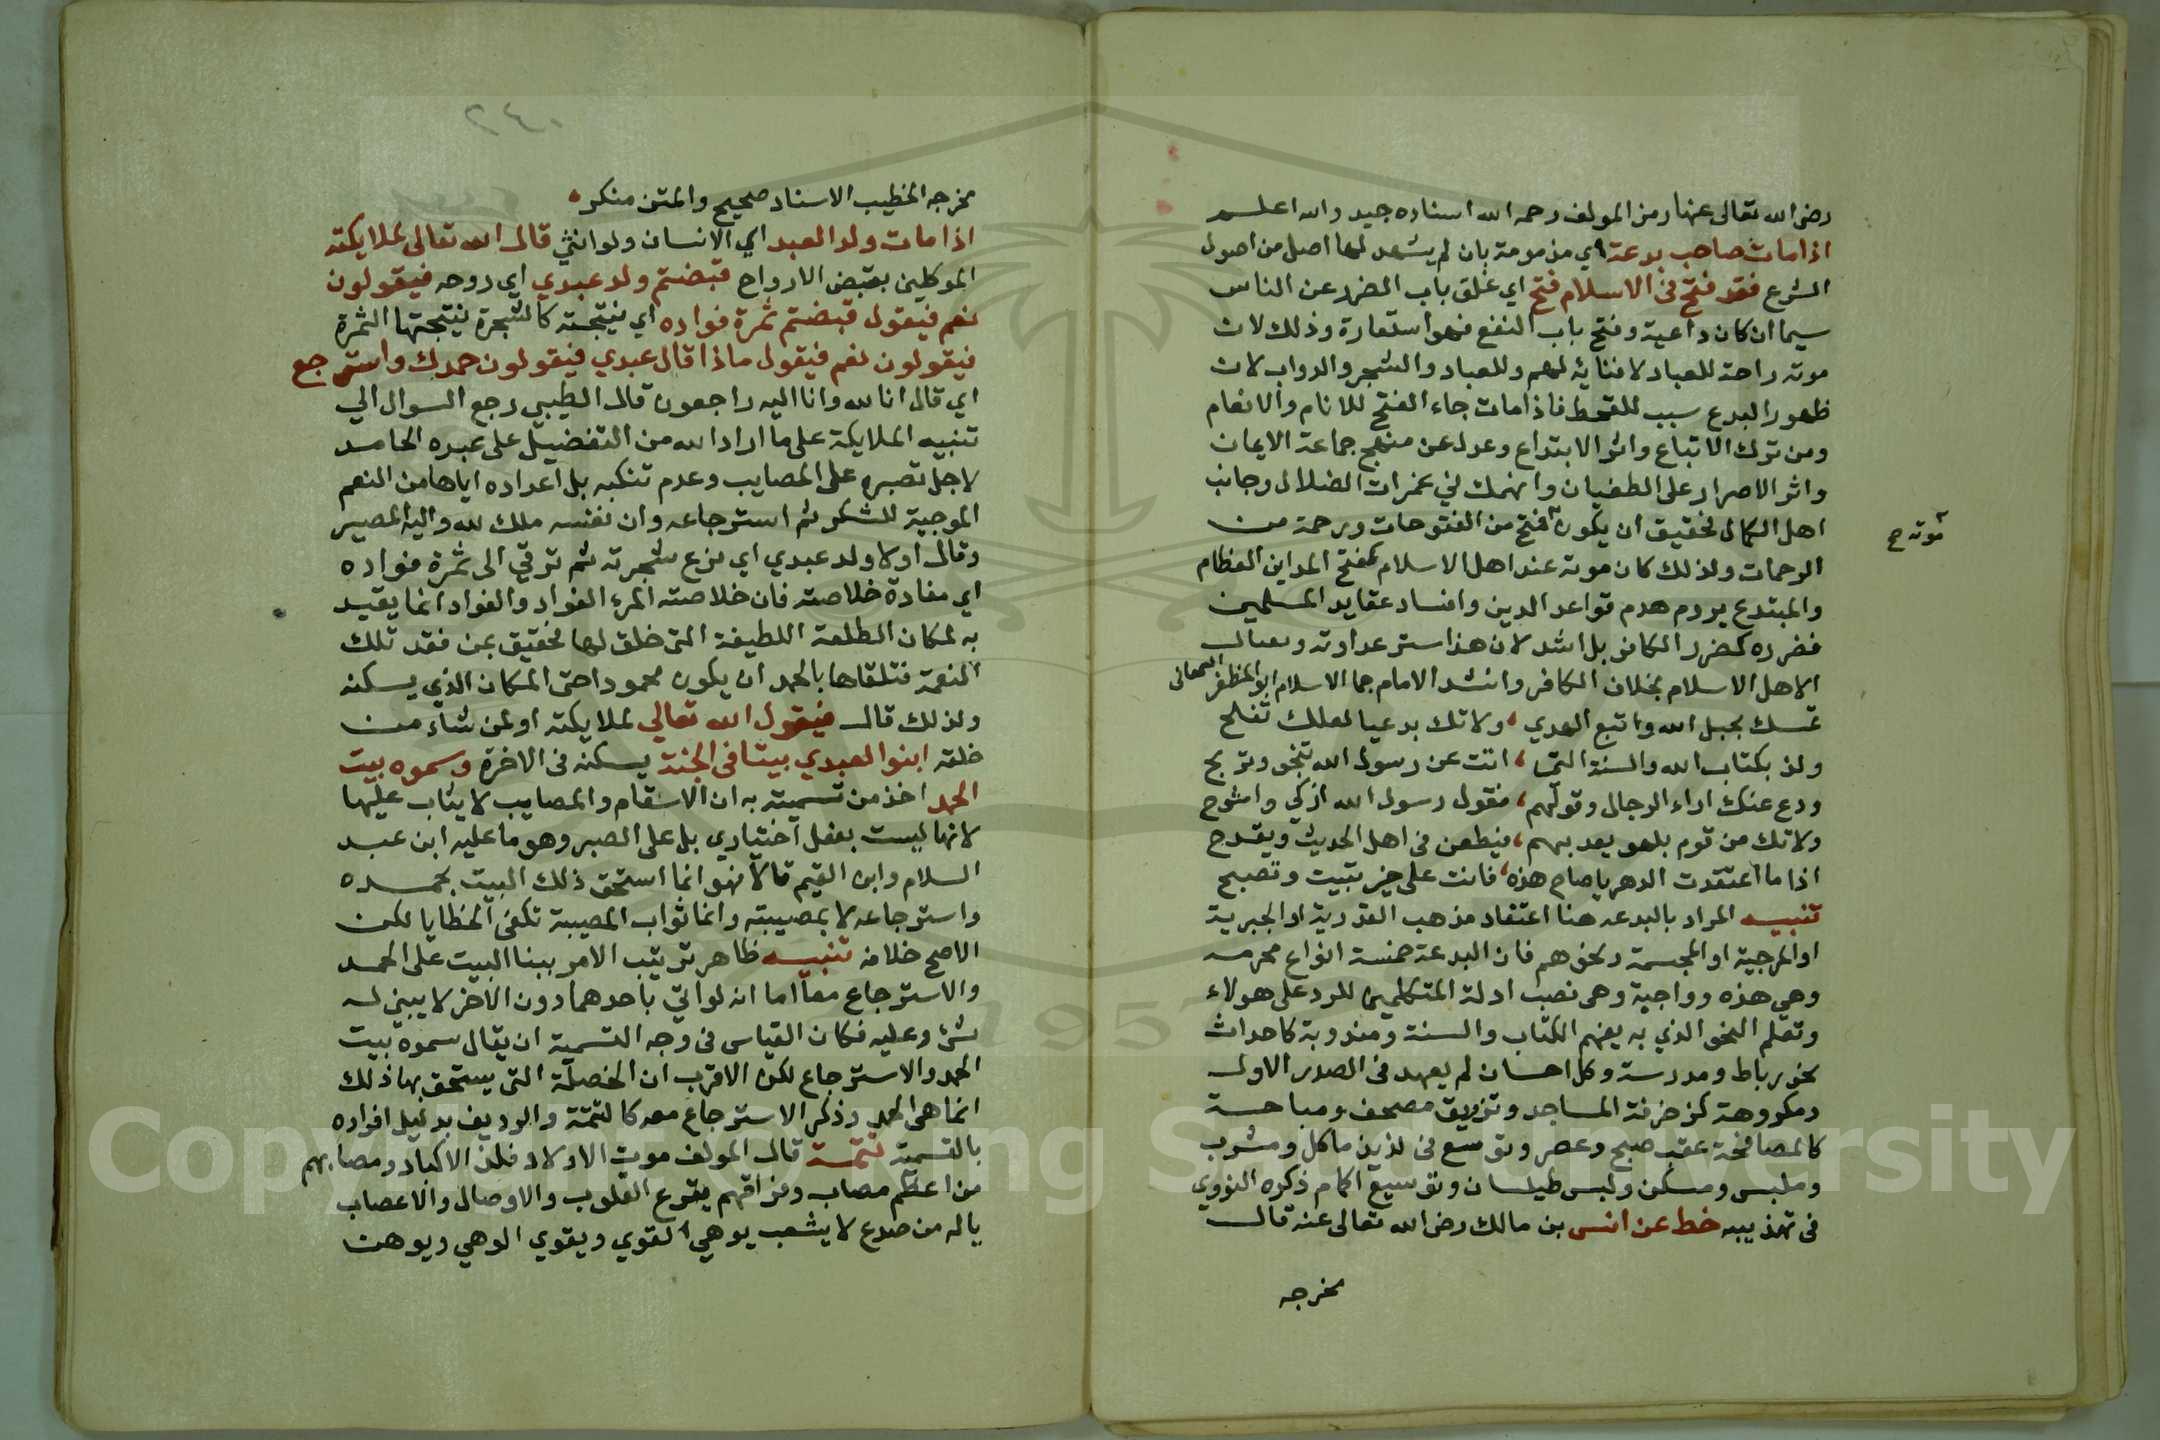 رضى الله تعالى عنها رمز المولف رحمه الله اسناده جيد والله اعلم
اذا مات صاحب بدعة اي مذمومة بان لم يشهد لها اصل من اصول
الشرع فقد فتح فى الاسلام فتح اي غلق باب الضرر عن الناس
سيما ان كان داعية وفتح باب النفع فهو استعارة وذلك لان
موته راحة للعباد لافتنانه لهم وللعباد والشجر والدواب لان
ظهور البدع سبب للقحط فاذا مات جاء الفتح للانام والانعام
ومن ترك الاتباع واثر الابتداع وعدل عن منهج جماعة الايمان
واثر الاصرار على الطغيان وانهمك في غمرات الضلال وجانب
اهل الكمال فحقيق ان يكون فتح من الفتوحات ورحمة من
موته صح
الرحمات ولذلك كان موته عند اهل الاسلام كفتح المداين العظام
والمبتدع يروم هدم قواعد الدين وافساد عقايد المسلمين
فضرره كضرر الكافر بل اشد لان هذا ستر عداوته
لاهل الاسلام بخلاف الكافر وانشد الامام جما الاسلام ابو المظفر السمعانى
تمسك بحبل الله واتبع الهدي ولا تك بدعيا لعلك تفلح
ولذ بكتاب الله والسنة التى اتت عن رسول الله تنجو وتربح
ودع عنك اراء الرجال وقولهم فقول رسول الله ازكي واشرح
ولا تك من قوم بلهو بعد بهم فيطعن فى اهل الحديث ويقدح
اذا ما اعتقدت الدهر ياصاح هذه فانت على خير تبيت وتصبح
تنبيه المراد بالبدعه هنا اعتقاد مذهب القدرية او الجبرية
او المرجية او المجسمة ونحوهم فان البدعة خمسة انواع محرمه
وهي هذه وواجبة وهى نصب ادلة المتكلمين للرد على هولاء
وتعلم النحو الذي به يفهم الكتاب والسنة ومندوبة كاحداث
نحو رباط ومدرسة وكل احسان لم يعهد فى الصدر الاول
ومكروهة كزخرفة المساجد وتزويق مصحف ومباحة
كالمصافحة عقب صبح وعصر وتوسع فى لذيذ ماكل ومشرب
وملبس ومسكن ولبس طيلسان وتوسيع اكمام ذكره النووي
فى تهذيبه خط عن انس بن مالك رضى الله تعالى عنه قال
مخرجه
٢٤٠
مخرجه الخطيب الاسناد صحيح والمتن منكر
اذا مات ولد العبد اي الانسان ولو انثي قال الله تعالى لملايكته
الموكلين بقبض الارواح قبضتم ولد عبدي اي روحه فيقولون
نعم فيقول قبضتم ثمرة فواده اي نتيجته كالشجرة نتيجتها الثمرة
فيقولون نعم فيقول ماذا قال عبدي فيقولون حمدك واسترجع
اي قال انا لله وانا اليه راجعون قال الطيبي رجع السوال الي
تنبيه الملايكة على ما اراد الله من التفضيل على عبده الحامد
لاجل تصبره على المصايب وعدم تنكبه بل اعداده اياها من النعم
الموجبة للشكر ثم استرجاعه وان نفسه ملك لله واليه المصير
وقال اولا ولد عبدي اي نزع شجرته ثم ترقي الى ثمرة فواده
اي مفادة خلاصته فان خلاصته المرء الفواد والفواد انما يقيد
به لمكان الطلعة اللطيفة التى خلق لها فحقيق بمن فقد تلك
النعمة فتلقاها بالحمد ان يكون محمودا حتى المكان الذي يسكنه
ولذلك قال فيقول الله تعالي لملايكته او لمن شاء من
خلقه ابنوا لعبدي بيتا فى الجنة يسكنه فى الاخرة وسموه بيت
الحمد اخذ من تسميته به ان الاسقام والمصايب لا يثاب عليها
لانها ليست بفعل اختياري بل على الصبر وهو ما عليه ابن عبد
السلام وابن القيم قالا فهو انما استحق ذلك البيت بحمده
واسترجاعه لا بمصيبته وانما ثواب المصيبة تكفر الخطايا لكن
الاصح خلافه تنبيه ظاهر ترتيب الامر ببنا البيت على الحمد
والاسترجاع معا اما انه لو اتي باحدهما دون الاخر لا يبني له
شئ وعليه فكان القياس فى وجه التسمية ان يقال سموه بيت
الحمد والاسترجاع لكن الاقرب ان الخصلة التى يستحق بها ذلك
انما هى الحمد وذكر الاسترجاع معه كالتتمة والرديف بدليل افراده
بالتسمية تتمة قال المولف موت الاولاد فلذ الاكباد ومصابهم
من اعظم مصاب وفراقهم يقرع القلوب والاوصال والاعصاب
ياله من صدع لا يشعب يوهي القوي ويقوي الوهي ويوهن